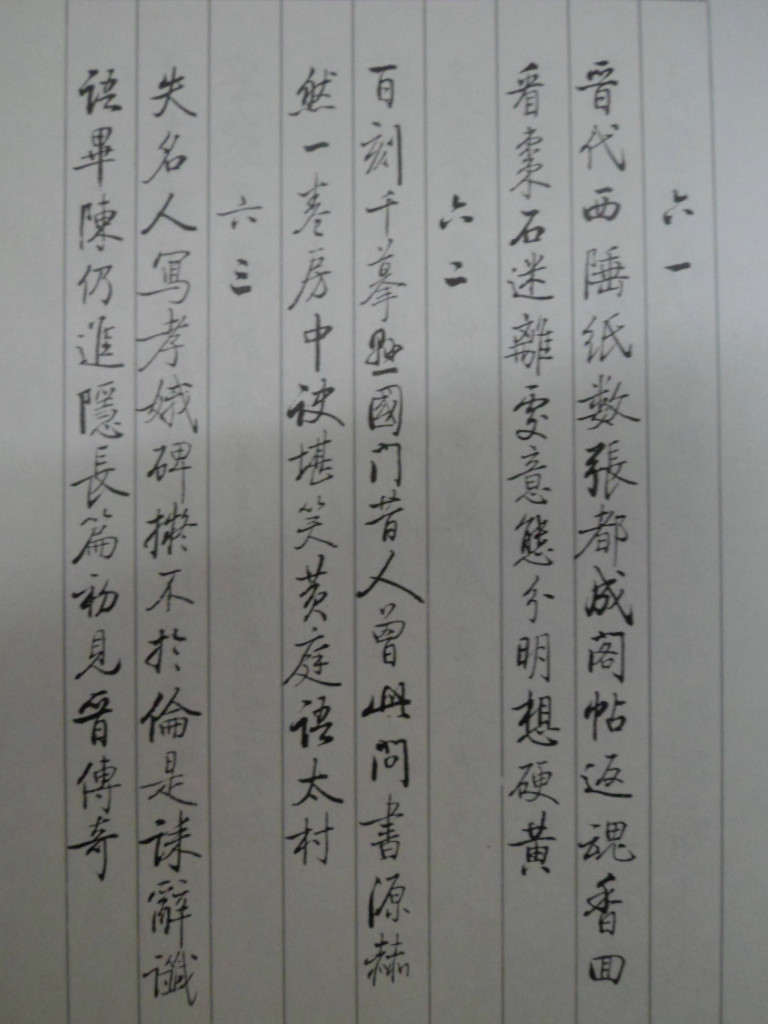 六一
晉代西陲紙数張都成閣帖返魂香回
看棗石迷離處意態分明想硬黃
六二
百刻千摹懸國門昔人曾此問書源赫
然一卷房中訣堪笑黃庭語太村
六三
失名人寫孝娥碑擬不於倫是誄辭讖
語畢陳仍進隱長篇初見晉傳奇